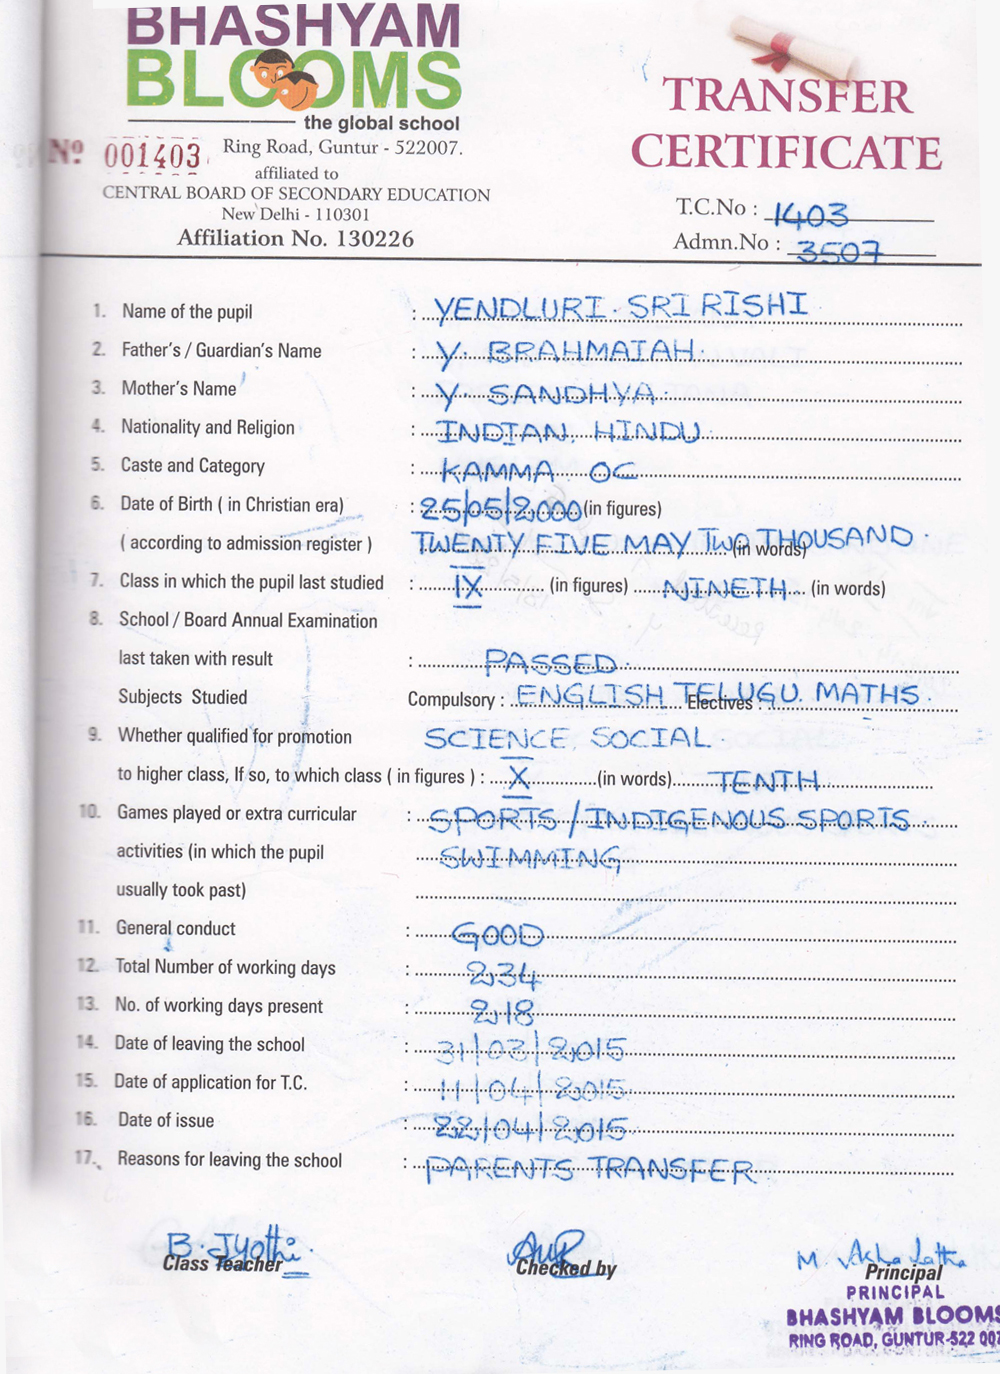 BHASHYAM
BLOOMS
the global school
Nº 001403
Ring Road, Guntur - 522007.
affiliated to
CENTRAL BOARD OF SECONDARY EDUCATION
New Delhi - 110301
Affiliation No. 130226
TRANSFER
CERTIFICATE
T.C.No : 1403
Admn.No : 3507
1. Name of the pupil : YENDLURI. SRI RISHI
2. Father's / Guardian's Name : Y. BRAHMAIAH.
3. Mother's Name : Y. SANDHYA.
4. Nationality and Religion : INDIAN, HINDU
5. Caste and Category : KAMMA OC
6. Date of Birth ( in Christian era) : 25/05/2000 (in figures)
( according to admission register ) TWENTY FIVE MAY TWO THOUSAND. (in words)
7. Class in which the pupil last studied : IX (in figures) NINETH (in words)
8. School / Board Annual Examination
last taken with result : PASSED.
Subjects Studied Compulsory : ENGLISH TELUGU. MATHS. Electives :
9. Whether qualified for promotion SCIENCE, SOCIAL
to higher class, If so, to which class ( in figures ) : X (in words) TENTH
10. Games played or extra curricular : SPORTS / INDIGENOUS SPORTS.
activities (in which the pupil SWIMMING
usually took past)
11. General conduct : GOOD
12. Total Number of working days : 234
13. No. of working days present : 218
14. Date of leaving the school : 31/03/2015
15. Date of application for T.C. : 11/04/2015
16. Date of issue : 22/04/2015
17. Reasons for leaving the school : PARENTS TRANSFER
B. Jyothi.
Class Teacher
Checked by
M.
Principal
PRINCIPAL
BHASHYAM BLOOMS
RING ROAD, GUNTUR-522 007